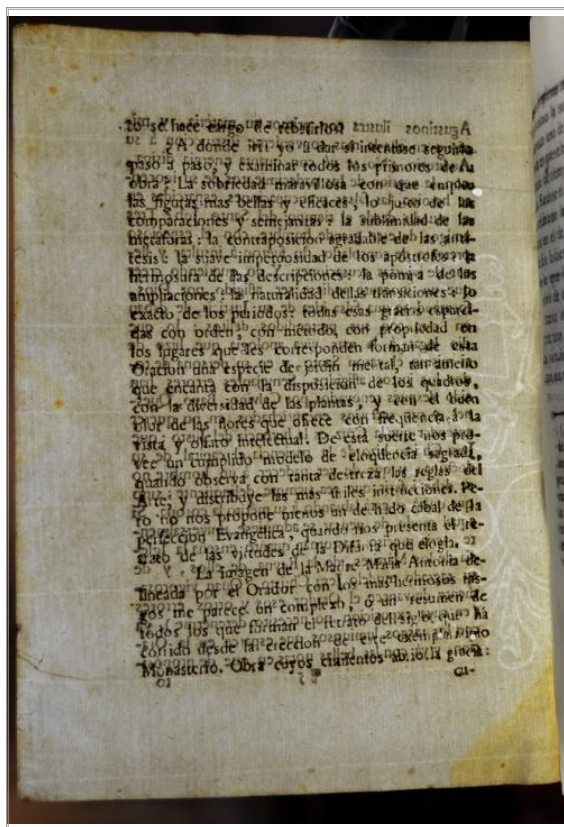 to se hace cargo de rebatirlos?
¿ A donde iría yo à dar si intentase seguirla
paso a paso, y examinar todos los primores de su
obra ? La sobriedad maravillosa con que emplea
las figuras mas bellas y eficaces, lo justo de las
comparaciones y semejanzas : la sublimidad de las
metáforas : la contraposicion agradable de las anti-
tesis : la suave impetuosidad de los apostrofes : la
hermosura de las descripciones : la pompa de las
ampliaciones : la naturalidad de las transiciones : lo
exacto de los periodos : todas esas gracias esparci-
das con orden, con metodo, con propiedad en
los lugares que les corresponden forman de esta
Oracion una especie de jardin mental, tan ameno
que encanta con la disposicion de los quadros,
con la diversidad de las plantas, y con el buen
olor de las flores que ofrece con freqüencia à la
vista, y olfato intelectual. De esta suerte nos pro-
vee un cumplido modelo de eloqüencia sagrada,
quando observa con tanta destreza las reglas del
Arte, y distribuye las mas útiles instrucciones. Pe-
ro no nos propone menos un dechado cabal de la
perfeccion Evangélica, quando nos presenta el re-
trato de las virtudes de la Difunta que elogia.
La imagen de la Madre Maria Antonia de-
lineada por el Orador con los mas hermosos ras-
gos me parece un complexo, ó un resumen de
todos los que forman el retrato del siglo que ha
corrido desde la ereccion de este exemplarisimo
Monasterio. Obra cuyos cimientos abrio la gracia: